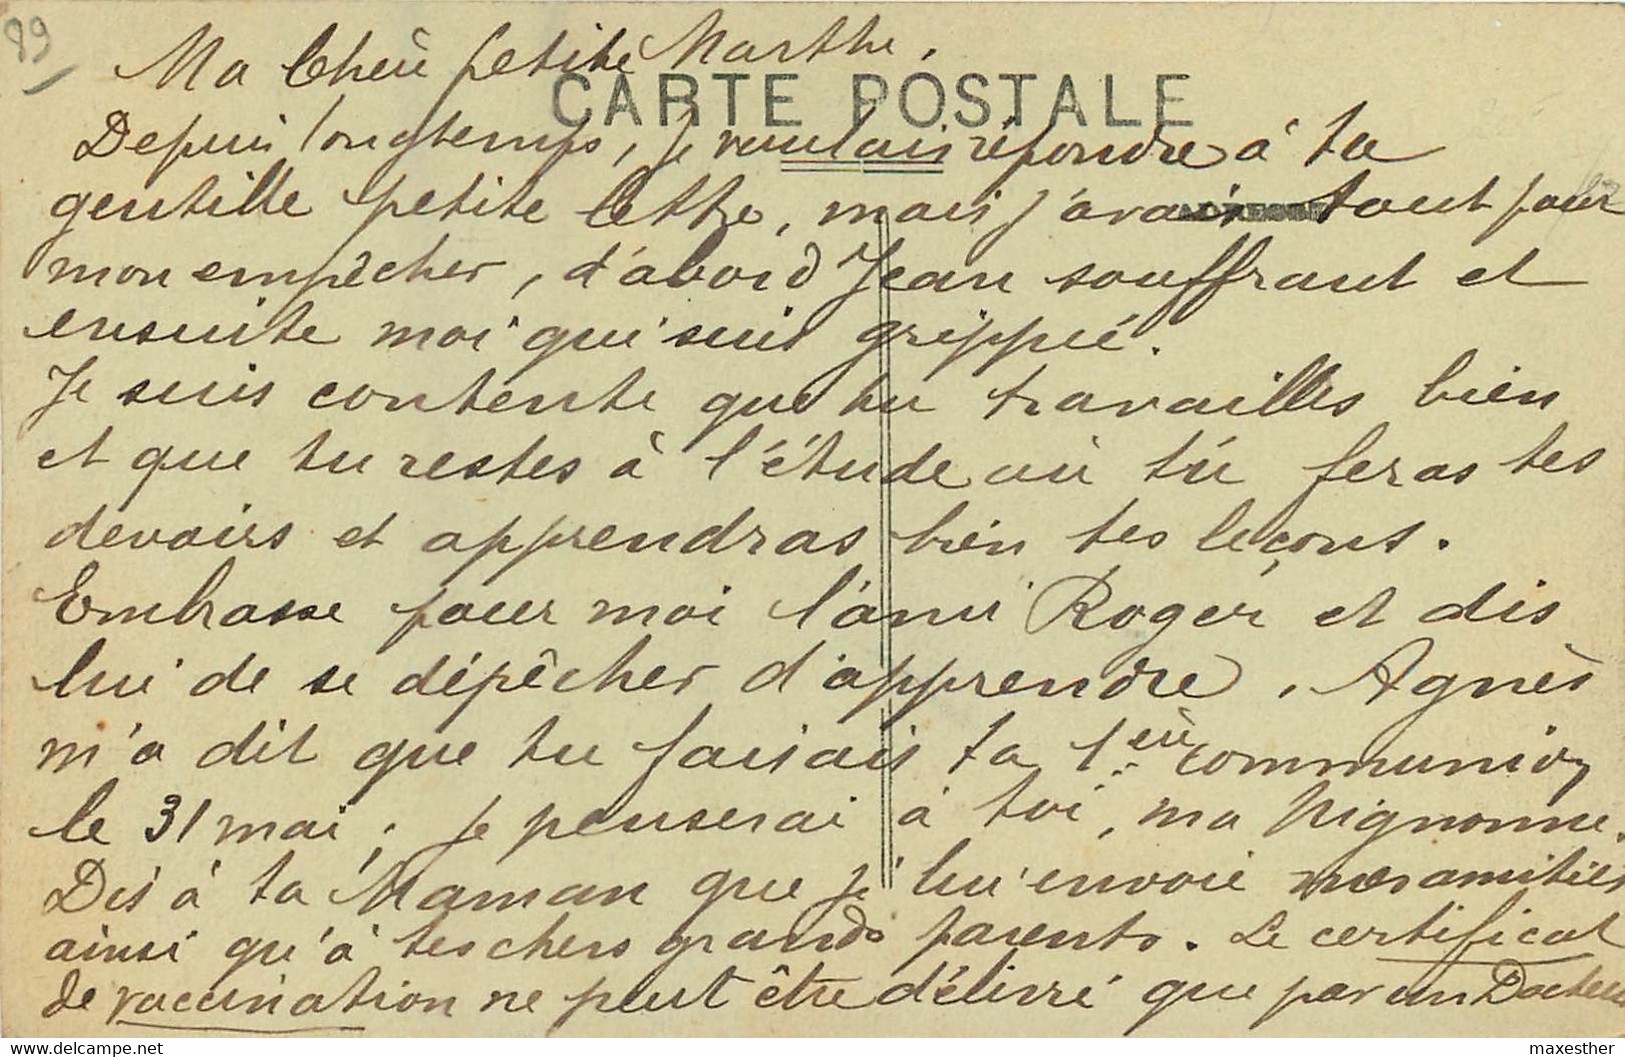 89
Ma Chère petite Marthe,
CARTE POSTALE
Depuis longtemps, je voulais répondre à ta
gentille petite lettre, mais j'avais tout pour
m'en empêcher, d'abord Jean souffrant et
ensuite moi qui suis grippée.
Je suis contente que tu travailles bien
et que tu restes à l'étude où tu feras tes
devoirs et apprendras bien tes leçons.
Embrasse pour moi l'ami Roger et dis
lui de se dépêcher d'apprendre. Agnès
m'a dit que tu faisais ta 1ère communion
le 31 mai, je penserai à toi, ma Mignonne.
Dis à ta Maman que je lui envoie mes amitiés
ainsi qu'à tes chers grands parents. Le certificat
de vaccination ne peut être délivré que par un Docteur
delcampe.net
maxesther